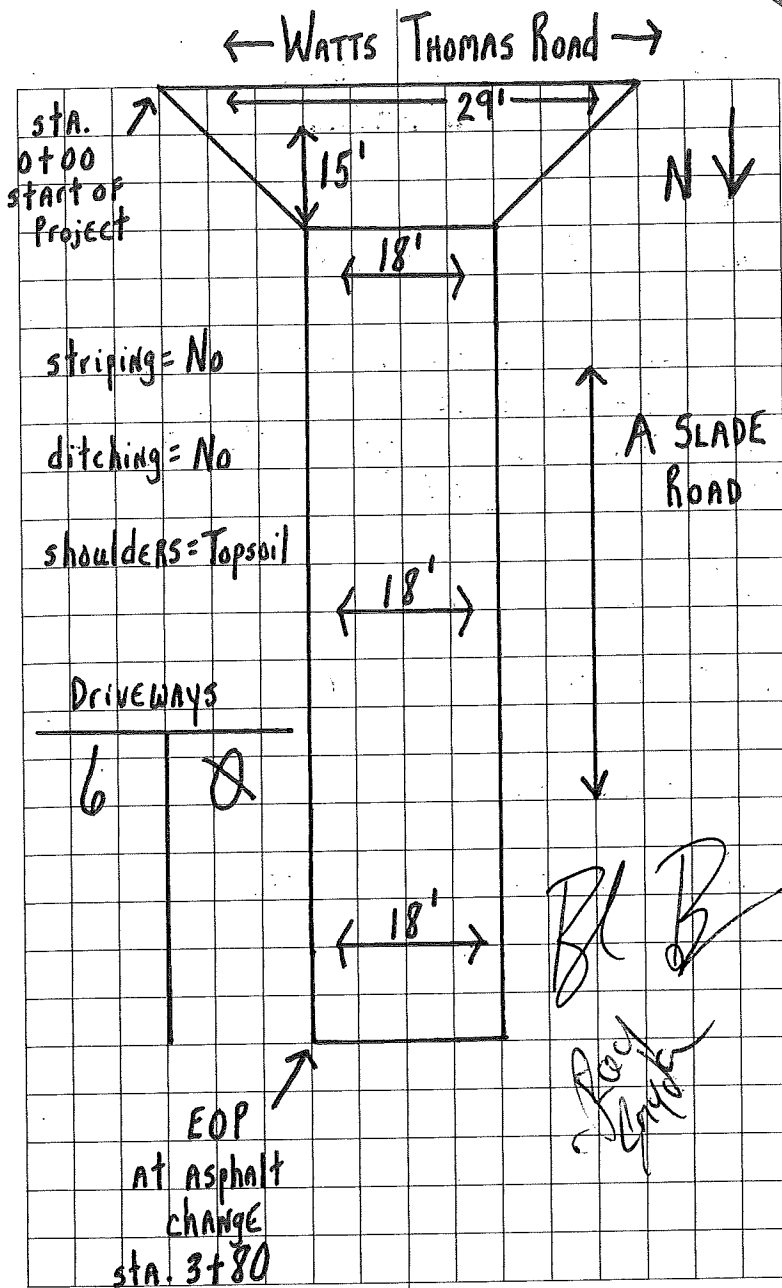 ← WATTS THOMAS ROAD →
29'
stA.
0+00
stArt of
Project
15'
N
18'
striping = No
ditching = No
A SLADE
ROAD
shouldERS = Topsoil
18'
DriVEWAYS
6 0
18'
EOP
At Asphalt
chANgE
stA. 3+80